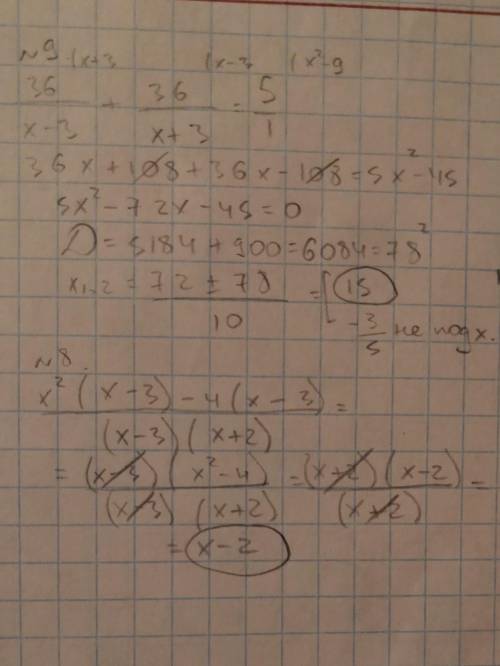 №9 (x+3 (x-3 (x²-9
36/(x-3) + 36/(x+3) = 5/1
36x+108+36x-108=5x²-45
5x²-72x-45=0
D=5184+900=6084=78²
x1,2 = (72±78)/10 = [15
-3/5 не подх.
№8.
(x²(x-3)-4(x-3))/((x-3)(x+2)) =
= ((x-3)(x²-4))/((x-3)(x+2)) = ((x+2)(x-2))/(x+2) =
= x-2